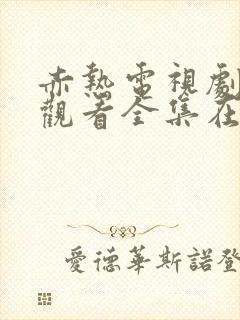 赤熱電視劇
觀看全集在
愛德華斯諾登